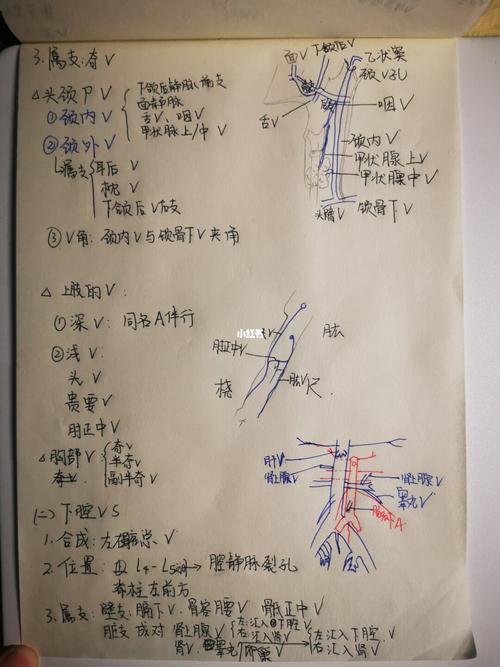 3. 属支:奇V
△头颈部V { 下颌后静脉前支
① 颈内V 面静脉
舌V、咽V
甲状腺上/中V
② 颈外V
属支 { 耳后V
枕V
下颌后V后支
③ V角: 颈内V与锁骨下V夹角
面V 下颌后V 乙状窦
颈V孔
咽V
舌V
颈内V
甲状腺上V
甲状腺中V
头臂V 锁骨下V
△ 上肢的V:
① 深V: 同名A伴行
② 浅V:
头V
贵要V
肘正中V
小红书
肱
肘正中V
桡 尺
△ 胸部V { 奇V
半奇V
副半奇V
肝V
肾上腺V
肾上腺V
睾丸V
(二) 下腔VS
1. 合成: 左右髂总V
2. 位置: 由L4-L5 → 腔静脉裂孔
脊柱左前方
3. 属支: 壁支: 膈下V 腰V 骶正中V
脏支 成对 肾上腺V { 左汇入 右汇入下腔
肾V 睾丸/卵巢V { 左汇入 右汇入